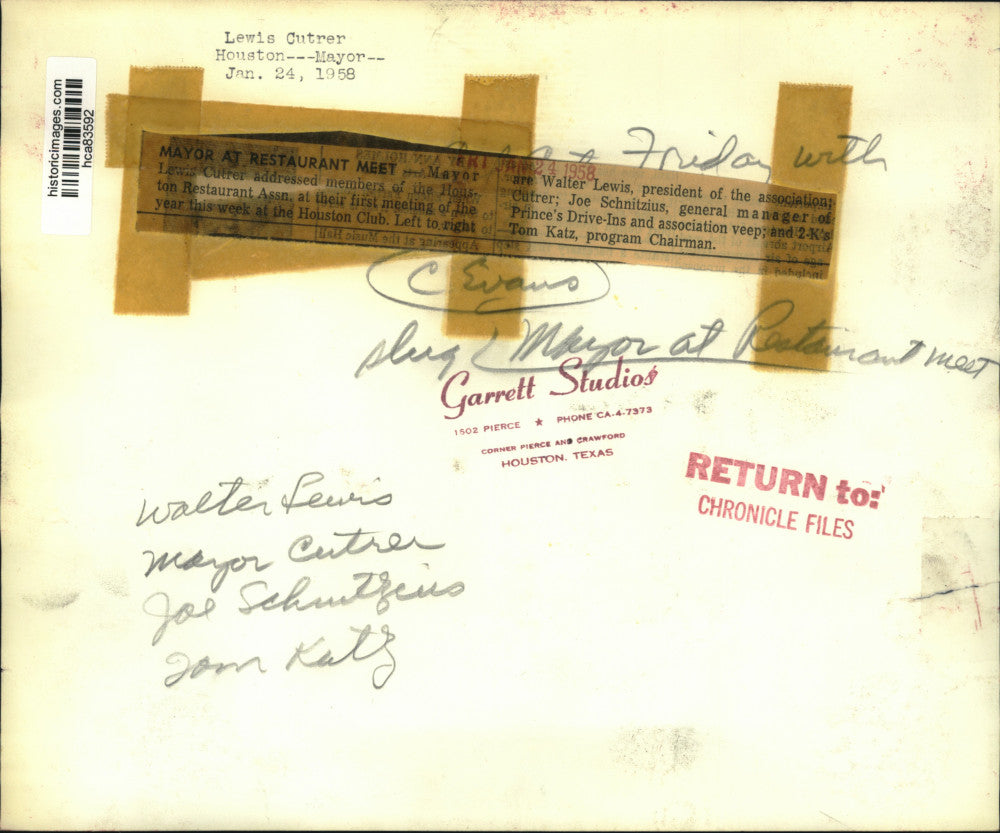 Lewis Cutrer
Houston---Mayor--
Jan. 24, 1958
historicimages.com
hca83592
Friday with
24 1958
MAYOR AT RESTAURANT MEET — Mayor
Lewis Cutrer addressed members of the Hous-
ton Restaurant Assn. at their first meeting of the
year this week at the Houston Club. Left to right
are Walter Lewis, president of the association;
Cutrer; Joe Schnitzius, general manager of
Prince's Drive-Ins and association veep; and 2-K's
Tom Katz, program Chairman.
C Evans
slug Mayor at Restaurant meet
Garrett Studios
1502 PIERCE ★ PHONE CA.4-7373
CORNER PIERCE AND CRAWFORD
HOUSTON, TEXAS
RETURN to:
CHRONICLE FILES
Walter Lewis
Mayor Cutrer
Joe Schnitzius
Tom Katz